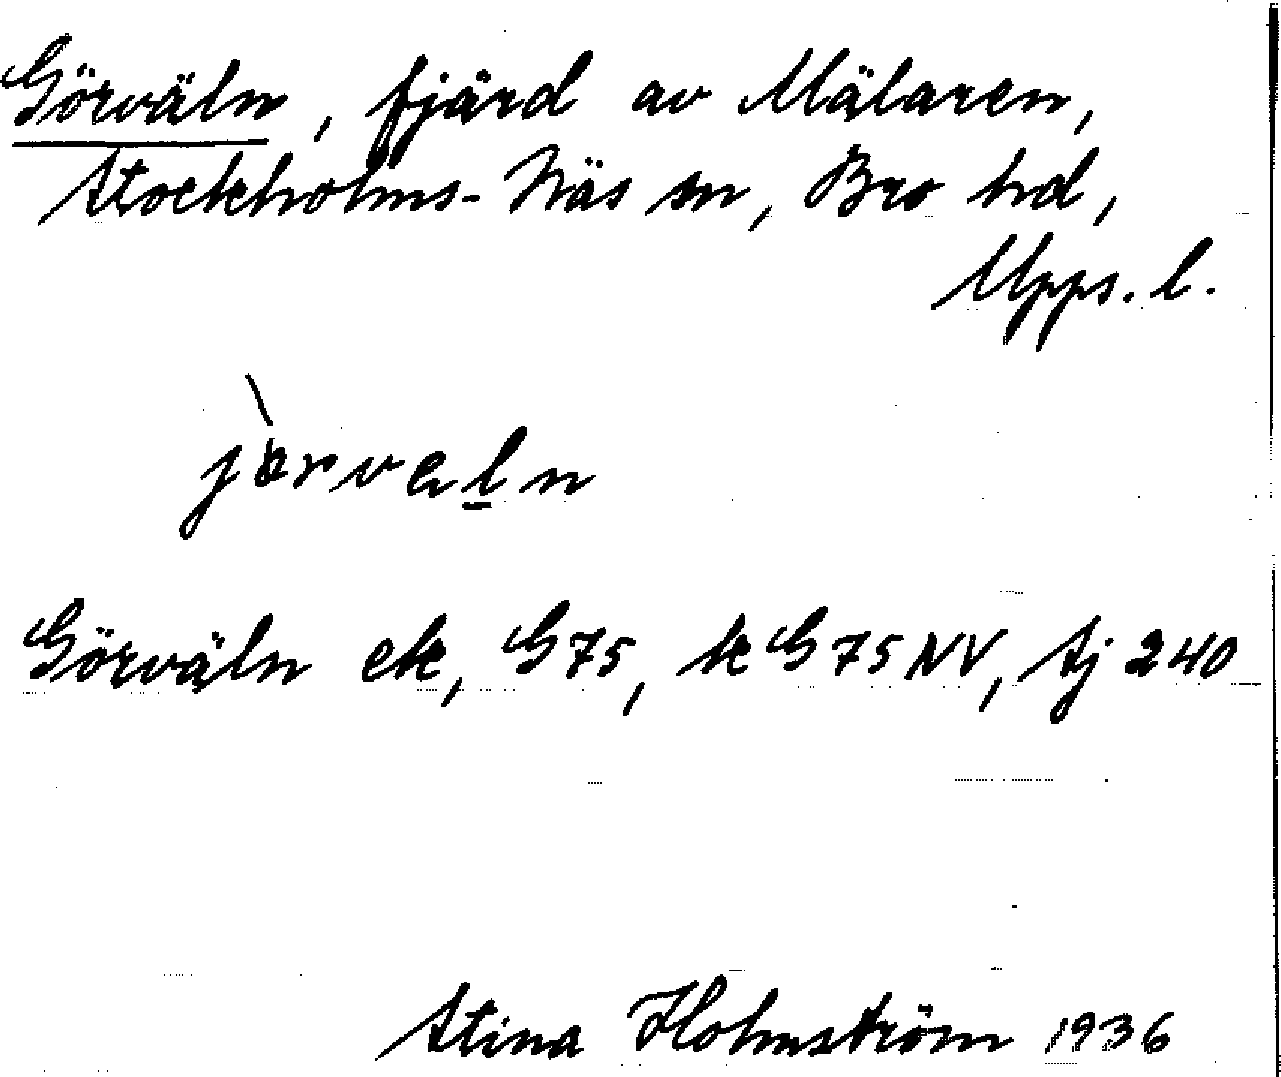 Görväln, fjärd av Mälaren,
Stockholms-Näs sn, Bro hd,
Upps. l.
Görväln ek, G75, k G75NV, Sj 240
Stina Holmström 1936